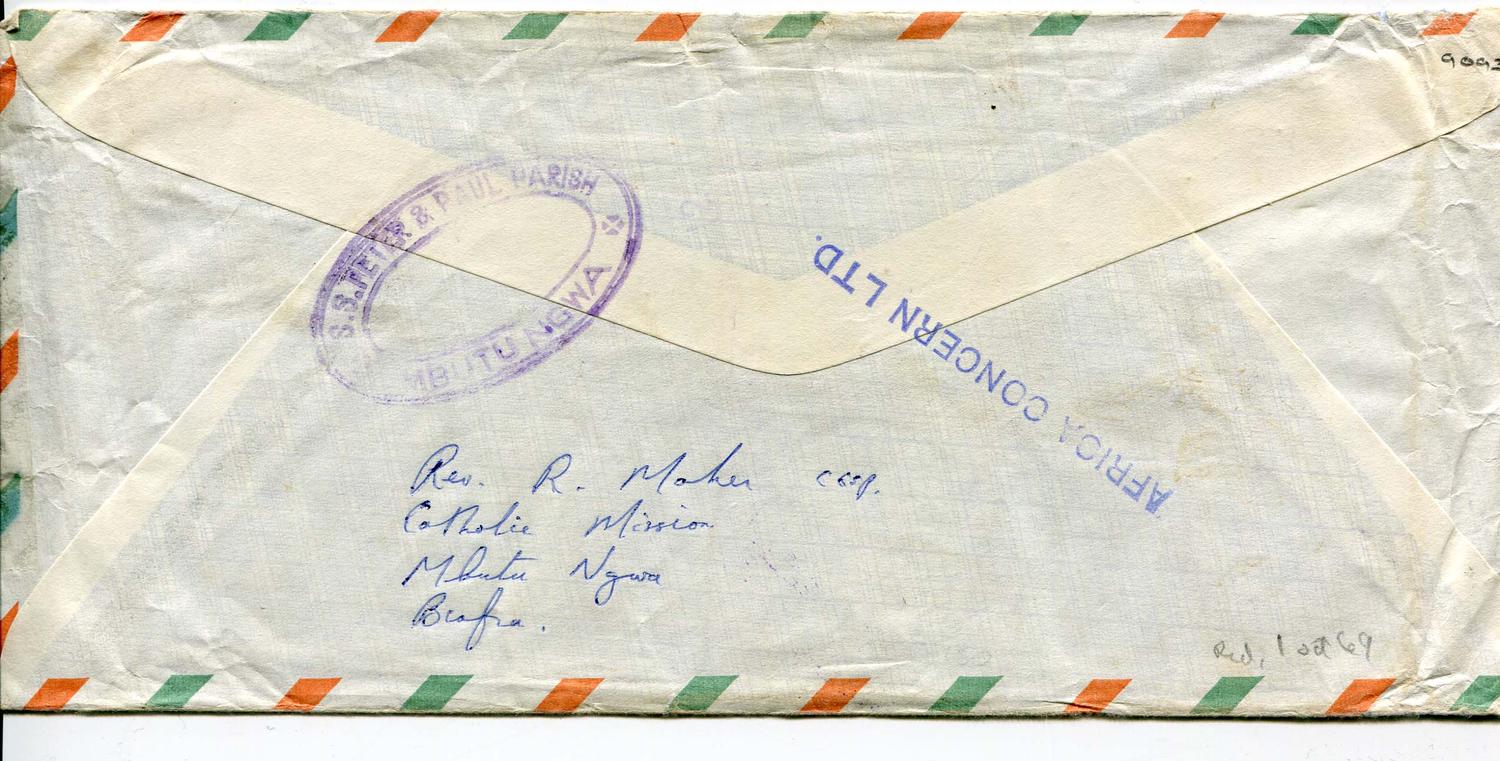 9093
S.S. PETER & PAUL PARISH
MBUTU NGWA
AFRICA CONCERN LTD.
Rev. R. Maher cssp.
Catholic Mission
Mbutu Ngwa
Biafra.
Red, 1 oct 69